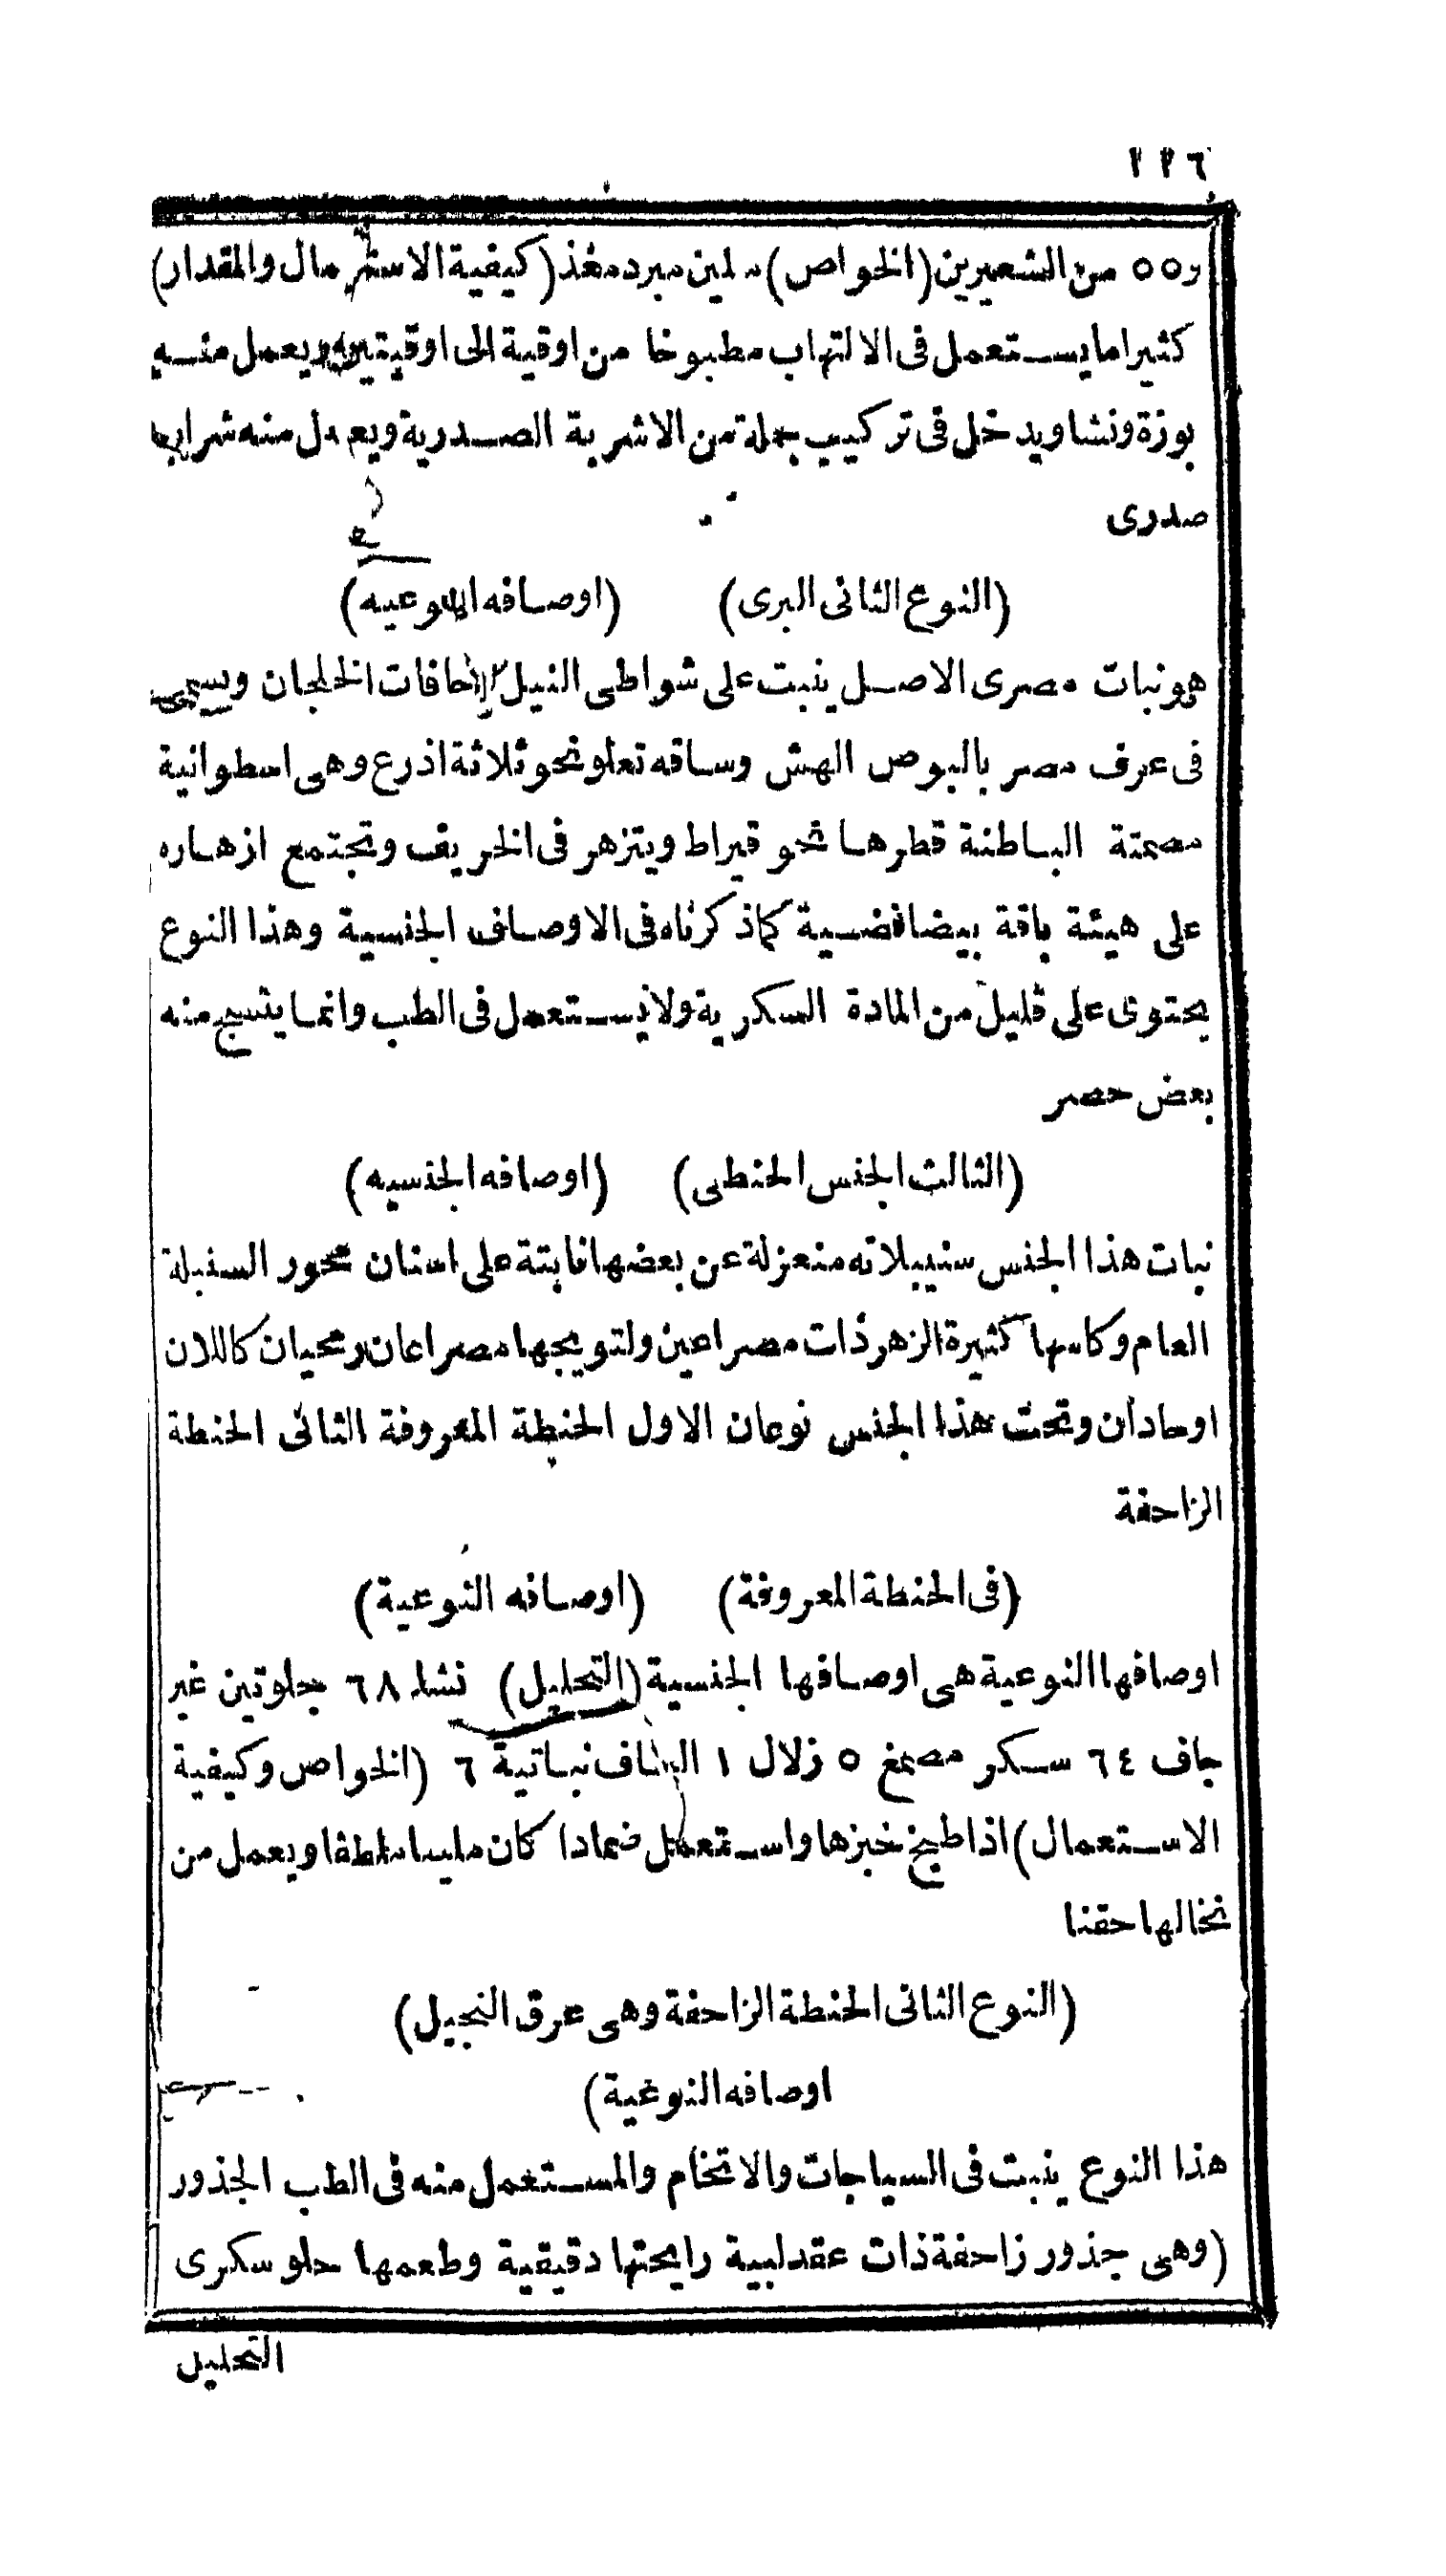 ١١٦
و٥٥ من الشعيرين (الخواص) ملين مبرد مغذ (كيفية الاستعمال والمقدار)
كثيرا ما يستعمل فى الالتهاب مطبوخا من اوقية الى اوقيتين ويعمل منه
بوزة ونشا ويدخل فى تركيب جملة من الاشربة الصدرية ويعمل منه شراب
صدرى
(النوع الثانى البرى) (اوصافه النوعيه)
هو نبات مصرى الاصل ينبت على شواطى النيل حافات الخلجان ويسمى
فى عرف مصر بالبوص الهش وساقه تعلو نحو ثلاثة اذرع وهى اسطوانية
مصمتة الباطنة قطرها نحو قيراط ويتزهر فى الخريف وتجتمع ازهاره
على هيئة باقة بيضا فضية كما ذكرناه فى الاوصاف الجنسية وهذا النوع
يحتوى على قليل من المادة السكرية ولا يستعمل فى الطب وانما ينسج منه
بعض حصر
(الثالث الجنس الحنطى) (اوصافه الجنسيه)
نبات هذا الجنس سنيبلاته منعزلة عن بعضها نابتة على اسنان محور السنبلة
العام وكاسها كثيرة الزهر ذات مصراعين ولتويجها مصراعان رمحيان كاللان
اوحادان وتحت هذا الجنس نوعان الاول الحنطة المعروفة الثانى الحنطة
الزاحفة
(فى الحنطة المعروفة) (اوصافه النوعية)
اوصافها النوعية هى اوصافها الجنسية (التحليل) نشا ٦٨ جلوتين غير
جاف ٦٤ سكر مصمغ ٥ زلال ١ الياف نباتية ٦ (الخواص وكيفية
الاستعمال) اذا طبخ خبزها واستعمل ضمادا كان ملينا ملطفا ويعمل من
نخالها حقنا
(النوع الثانى الحنطة الزاحفة وهى عرق النجيل)
اوصافه النوعية)
هذا النوع ينبت فى السياجات والاتخام والمستعمل منه فى الطب الجذور
(وهى جذور زاحفة ذات عقد لبية رايحتها دقيقية وطعمها حلو سكرى
التحليل